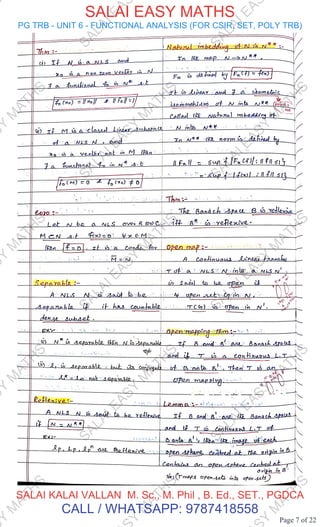 SALAI EASY MATHS
PG TRB - UNIT 6 - FUNCTIONAL ANALYSIS (FOR CSIR, SET, POLY TRB)
Thm:-
(i) If N is a NLS and
x₀ is a non zero vector in N
∃ a functional f₀ in N* s.t
f₀(x₀) = ‖x₀‖ & ‖f₀‖ = 1
(ii) If M is a closed linear subspace
of a NLS N, and
x₀ is a vector not in M then
∃ a functional f₀ in N* s.t
f₀(M) = 0 & f₀(x₀) ≠ 0
Let N be a NLS over R or C
M ⊂ N s.t f(x)=0 ∀ x ∈ M
Then f=0. It is a condn for
M̄ = N.
Separable:-
A NLS N is said to be
separable if it has countable
dense subset.
Ex:-
(i) N* is separable then N is separable
(ii) l₁ is separable but its conjugate
l₁* = l∞ not separable.
Reflexive:-
A NLS N is said to be reflexive
if N = N**
Ex:-
are reflexive
Natural imbedding of N in N**:-
In the map N → N**
Fₓ is defined by Fₓ(f) = f(x)
It is linear and ∃ a isometric
isomorphism of N into N**
Called the Natural imbedding of
N into N**
In N** the norm is defined by
‖Fₓ‖ = sup{|Fₓ(f)| : ‖f‖ ≤ 1}
= sup{|f(x)| : ‖f‖ ≤ 1}
Thm:-
The Banach space B is reflexive
iff B* is reflexive.
Open map:-
A continuous linear transfm
T of a NLS N into a NLS N'
is said to be open if
∀ open set G in N,
T(G) is open in N'.
Open mapping thm:-
If B and B' are Banach spaces
and if T is a continuous L.T
of B onto B'. Then T is an
open mapping.
Lemma:-
If B and B' are the Banach spaces
and if T is continuous L.T of
B onto B' then the image of each
open sphere centred at the origin in B
contains an open sphere centred at
origin in B'
(T maps open sets into open sets)
Page 7 of 22
SALAI KALAI VALLAN M. Sc., M. Phil , B. Ed., SET., PGDCA
CALL / WHATSAPP: 9787418558